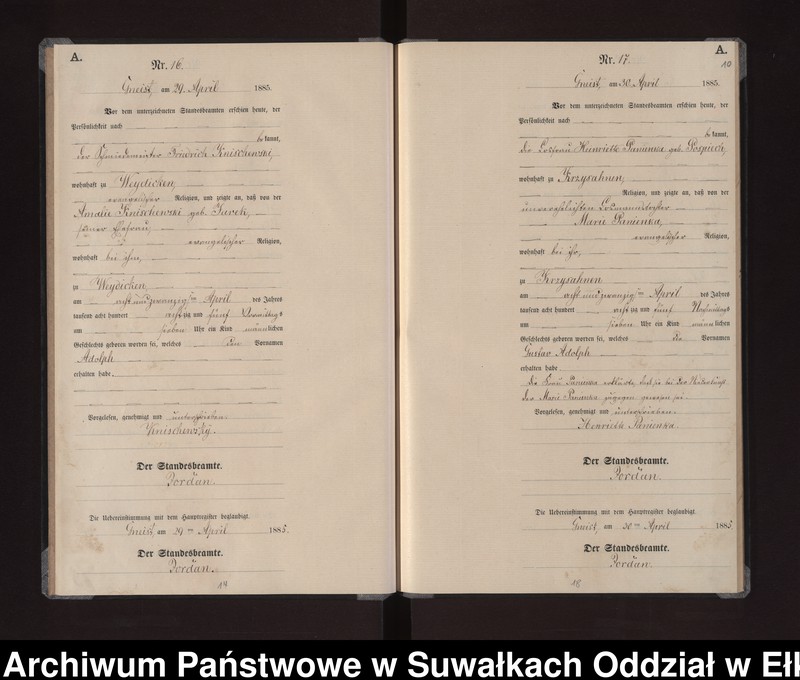 A.
Nr. 16.
Gneist, am 29. April 1885.
Vor dem unterzeichneten Standesbeamten erschien heute, der
Persönlichkeit nach
bekannt,
der Schmiedemeister Friedrich Knischewski,
wohnhaft zu Weydicken,
evangelischer Religion, und zeigte an, daß von der
Amalie Knischewski geb. Jurek,
seiner Ehefrau,
evangelischer Religion,
wohnhaft bei ihm,
zu Weydicken,
am acht und zwanzigsten April des Jahres
tausend acht hundert achtzig und fünf Vormittags
um sieben Uhr ein Kind männlichen
Geschlechts geboren worden sei, welches den Vornamen
Adolph
erhalten habe.
Vorgelesen, genehmigt und unterschrieben.
Knischewsky.
Der Standesbeamte.
Jordan.
Die Uebereinstimmung mit dem Hauptregister beglaubigt.
Gneist, am 29ten April 1885.
Der Standesbeamte.
Jordan.
14
A.
10
Nr. 17.
Gneist, am 30. April 1885.
Vor dem unterzeichneten Standesbeamten erschien heute, der
Persönlichkeit nach
bekannt,
die Losfrau Henriette Panienka geb. Pospiech,
wohnhaft zu Krzysahnen,
Religion, und zeigte an, daß von der
unverehelichten Losmannstochter
Marie Panienka,
evangelischer Religion,
wohnhaft bei ihr,
zu Krzysahnen
am acht und zwanzigsten April des Jahres
tausend acht hundert achtzig und fünf Nachmittags
um sieben Uhr ein Kind männlichen
Geschlechts geboren worden sei, welches die Vornamen
Gustav Adolph
erhalten habe
die Frau Panienka erklärte, daß sie bei der Niederkunft
der Marie Panienka zugegen gewesen sei.
Vorgelesen, genehmigt und unterschrieben.
Henriette Panienka.
Der Standesbeamte.
Jordan.
Die Uebereinstimmung mit dem Hauptregister beglaubigt.
Gneist, am 30ten April 1885
Der Standesbeamte.
Jordan.
18
Archiwum Państwowe w Suwałkach Oddział w Ełk